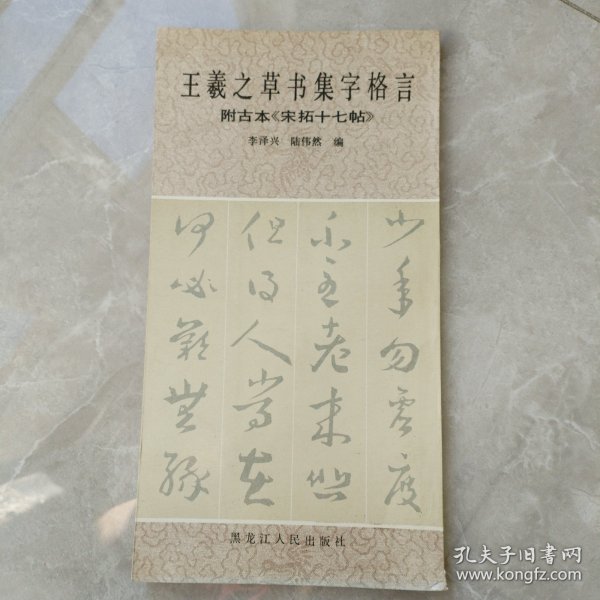 王羲之草书集字格言
附古本《宋拓十七帖》
李泽兴 陆伟然 编
少年勿虚度
不至老来
但得人常在
何必無緣
黑龙江人民出版社
孔夫子旧书网
www.kongfz.com